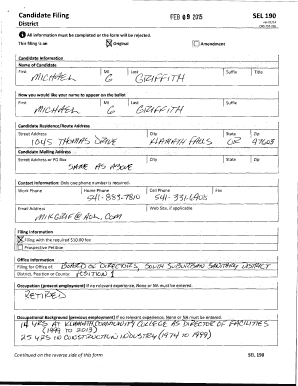 Candidate Filing
District
FEB 09 2015
SEL 190
All information must be completed or the form will be rejected.
This filing is an Original Amendment
Candidate Information
Name of Candidate
First MI Last Suffix Title
MICHAEL G GRIFFITH
How you would like your name to appear on the ballot
First MI Last Suffix
MICHAEL G GRIFFITH
Candidate Residence/Route Address
Street Address City State Zip
1045 THOMAS DRIVE KLAMATH FALLS OR 97603
Candidate Mailing Address
Street Address or PO Box City State Zip
SAME AS ABOVE
Contact Information Only one phone number is required.
Work Phone Home Phone Cell Phone Fax
541-883-7810 541-331-6905
Email Address Web Site, if applicable
MIKGRIF@AOL.COM
Filing Information
Filing with the required $10.00 fee
Prospective Petition
Office Information
Filing for Office of: BOARD OF DIRECTORS, SOUTH SUBURBAN SANITARY DISTRICT
District, Position or County: POSITION 1
Occupation (present employment) If no relevant experience, None or NA must be entered.
RETIRED
Occupational Background (previous employment) If no relevant experience, None or NA must be entered.
14 YRS AT KLAMATH COMMUNITY COLLEGE AS DIRECTOR OF FACILITIES
(1999 TO 2013)
25 YRS IN CONSTRUCTION INDUSTRY (1974 TO 1999)
Continued on the reverse side of this form
SEL 190